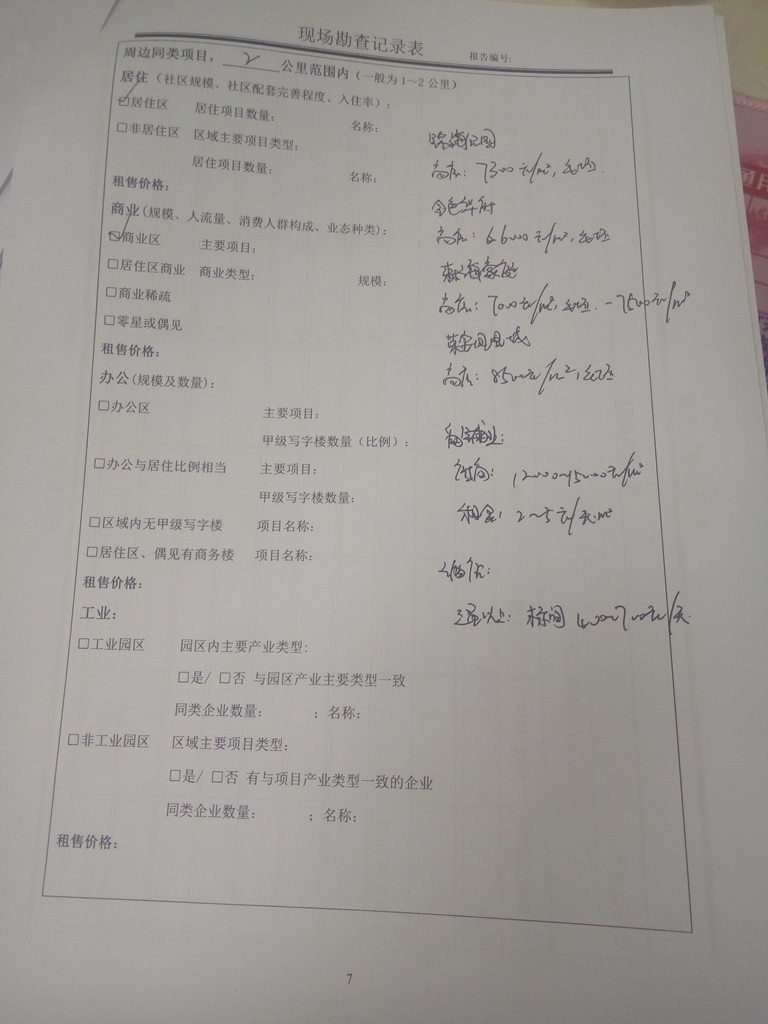 现场勘查记录表
报告编号:
周边同类项目，2公里范围内（一般为1~2公里）
居住（社区规模、社区配套完善程度、入住率）:
☑居住区 居住项目数量: 名称:
☐非居住区 区域主要项目类型:
高层: 7300元/m², 毛坯.
居住项目数量: 名称:
租售价格:
金色华府
商业(规模、人流量、消费人群构成、业态种类):
高层: 6000元/m², 毛坯
☑商业区 主要项目:
☐居住区商业 商业类型: 规模:
高层: 7000元/m², 毛坯. -7500元/m²
☐商业稀疏
☐零星或偶见
租售价格:
高层: 8500元/m², 毛坯
办公(规模及数量):
☐办公区 主要项目:
甲级写字楼数量（比例）:
☐办公与居住比例相当 主要项目:
12000~15000元/m²
甲级写字楼数量:
租金: 2~5元/天·m²
☐区域内无甲级写字楼 项目名称:
☐居住区、偶见有商务楼 项目名称:
酒店:
租售价格:
工业:
三星以上: 标间 400~700元/天
☐工业园区 园区内主要产业类型:
☐是/ ☐否 与园区产业主要类型一致
同类企业数量: ; 名称:
☐非工业园区 区域主要项目类型:
☐是/ ☐否 有与项目产业类型一致的企业
同类企业数量: ; 名称:
租售价格:
7